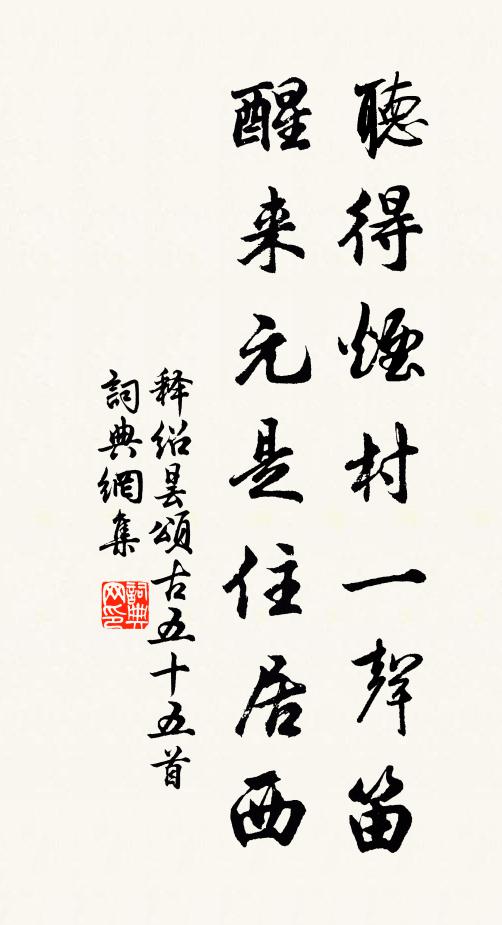 聽得煙村一聲笛
醒来元是住居西
释绍昙頌古五十五首
詞典網集
詞典网印